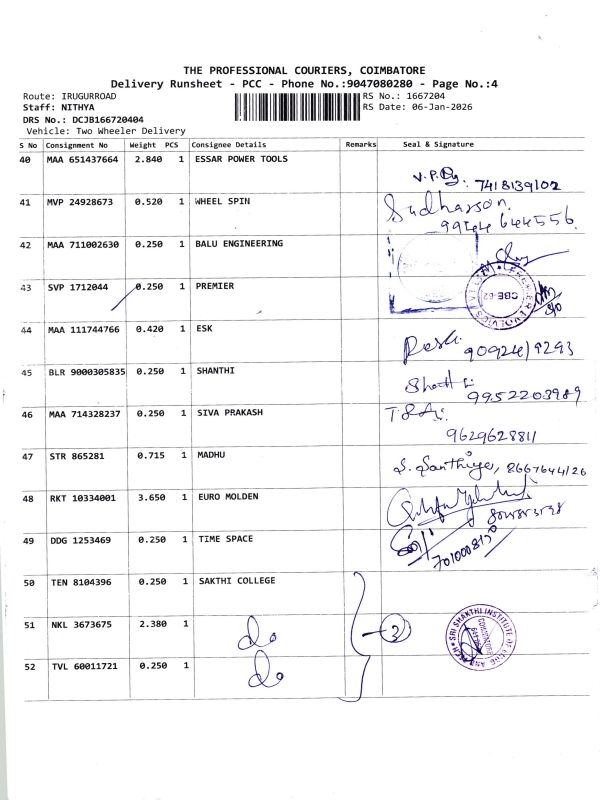 THE PROFESSIONAL COURIERS, COIMBATORE
Delivery Runsheet - PCC - Phone No.:9047080280 - Page No.:4
Route: IRUGURROAD
RS No.: 1667204
Staff: NITHYA
RS Date: 06-Jan-2026
DRS No.: DCJB166720404
Vehicle: Two Wheeler Delivery
S No Consignment No Weight PCS Consignee Details Remarks Seal & Signature
40 MAA 651437664 2.840 1 ESSAR POWER TOOLS
7418139102
41 MVP 24928673 0.520 1 WHEEL SPIN
Sudharson
9944 644556
42 MAA 711002630 0.250 1 BALU ENGINEERING
43 SVP 1712044 0.250 1 PREMIER
CBE-62
44 MAA 111744766 0.420 1 ESK
45 BLR 9000305835 0.250 1 SHANTHI
9952203989
46 MAA 714328237 0.250 1 SIVA PRAKASH
9629628811
47 STR 865281 0.715 1 MADHU
S. Santhiya, 8667644126
48 RKT 10334001 3.650 1 EURO MOLDEN
49 DDG 1253469 0.250 1 TIME SPACE
50 TEN 8104396 0.250 1 SAKTHI COLLEGE
51 NKL 3673675 2.380 1 do
3
SRI SHAKTHI INSTITUTE OF
52 TVL 60011721 0.250 1 do